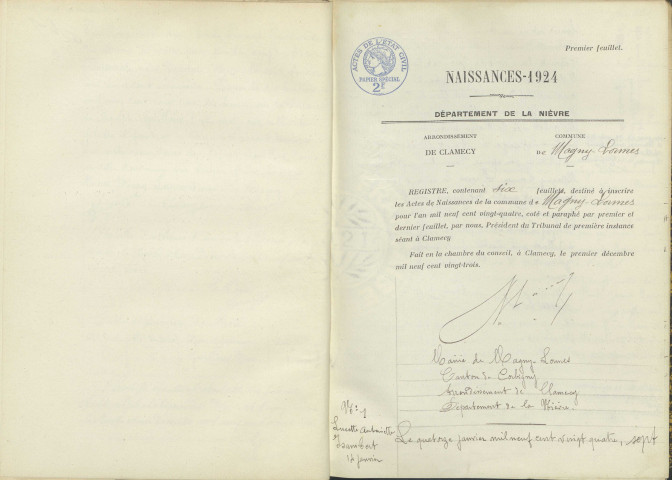 Premier feuillet.
ACTES DE L'ÉTAT CIVIL
PAPIER SPÉCIAL
2F
NAISSANCES-1924
DÉPARTEMENT DE LA NIÈVRE
ARRONDISSEMENT
DE CLAMECY
COMMUNE
DE Magny Lormes
REGISTRE, contenant six feuillets, destiné à inscrire
les Actes de Naissances de la commune de Magny Lormes
pour l'an mil neuf cent vingt-quatre, coté et paraphé par premier et
dernier feuillet, par nous, Président du Tribunal de première instance
séant à Clamecy
Fait en la chambre du conseil, à Clamecy, le premier décembre
mil neuf cent vingt-trois.
Mairie de Magny Lormes
Canton de Corbigny
Arrondissement de Clamecy
Département de la Nièvre.
No 1
Lucette Antoinette
14 janvier
Le quatorze janvier mil neuf cent vingt quatre, sept